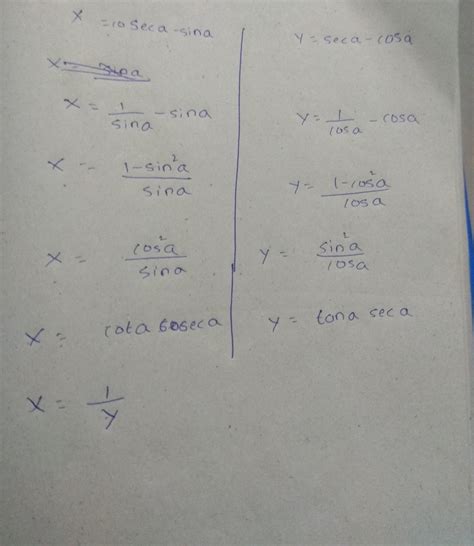 x = coseca - sina
x = sina
x = 1/sina - sina
x = 1-sin²a/sina
x = cos²a/sina
x = cota coseca
x = 1/y
y = seca - cosa
y = 1/cosa - cosa
y = 1-cos²a/cosa
y = sin²a/cosa
y = tana seca